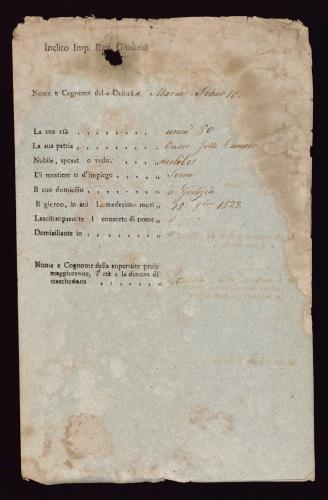 Inclito Imp. Reg. Giudizio
Nome e Cognome della Defunta Maria
La sua età anni 50
La sua patria sotto Canale
Nubile, sposat o vedov nubile
Di mestiere o d'impiego Serva
Il suo domicilio a Gorizia
Il giorno, in cui la medesima morì 18 8bre 1822
Lasciò superstite l consorte di nome
Domiciliante in
Nome e Cognome della superstite prole
maggiorenne, l'età e la dimora di
ciaschedun